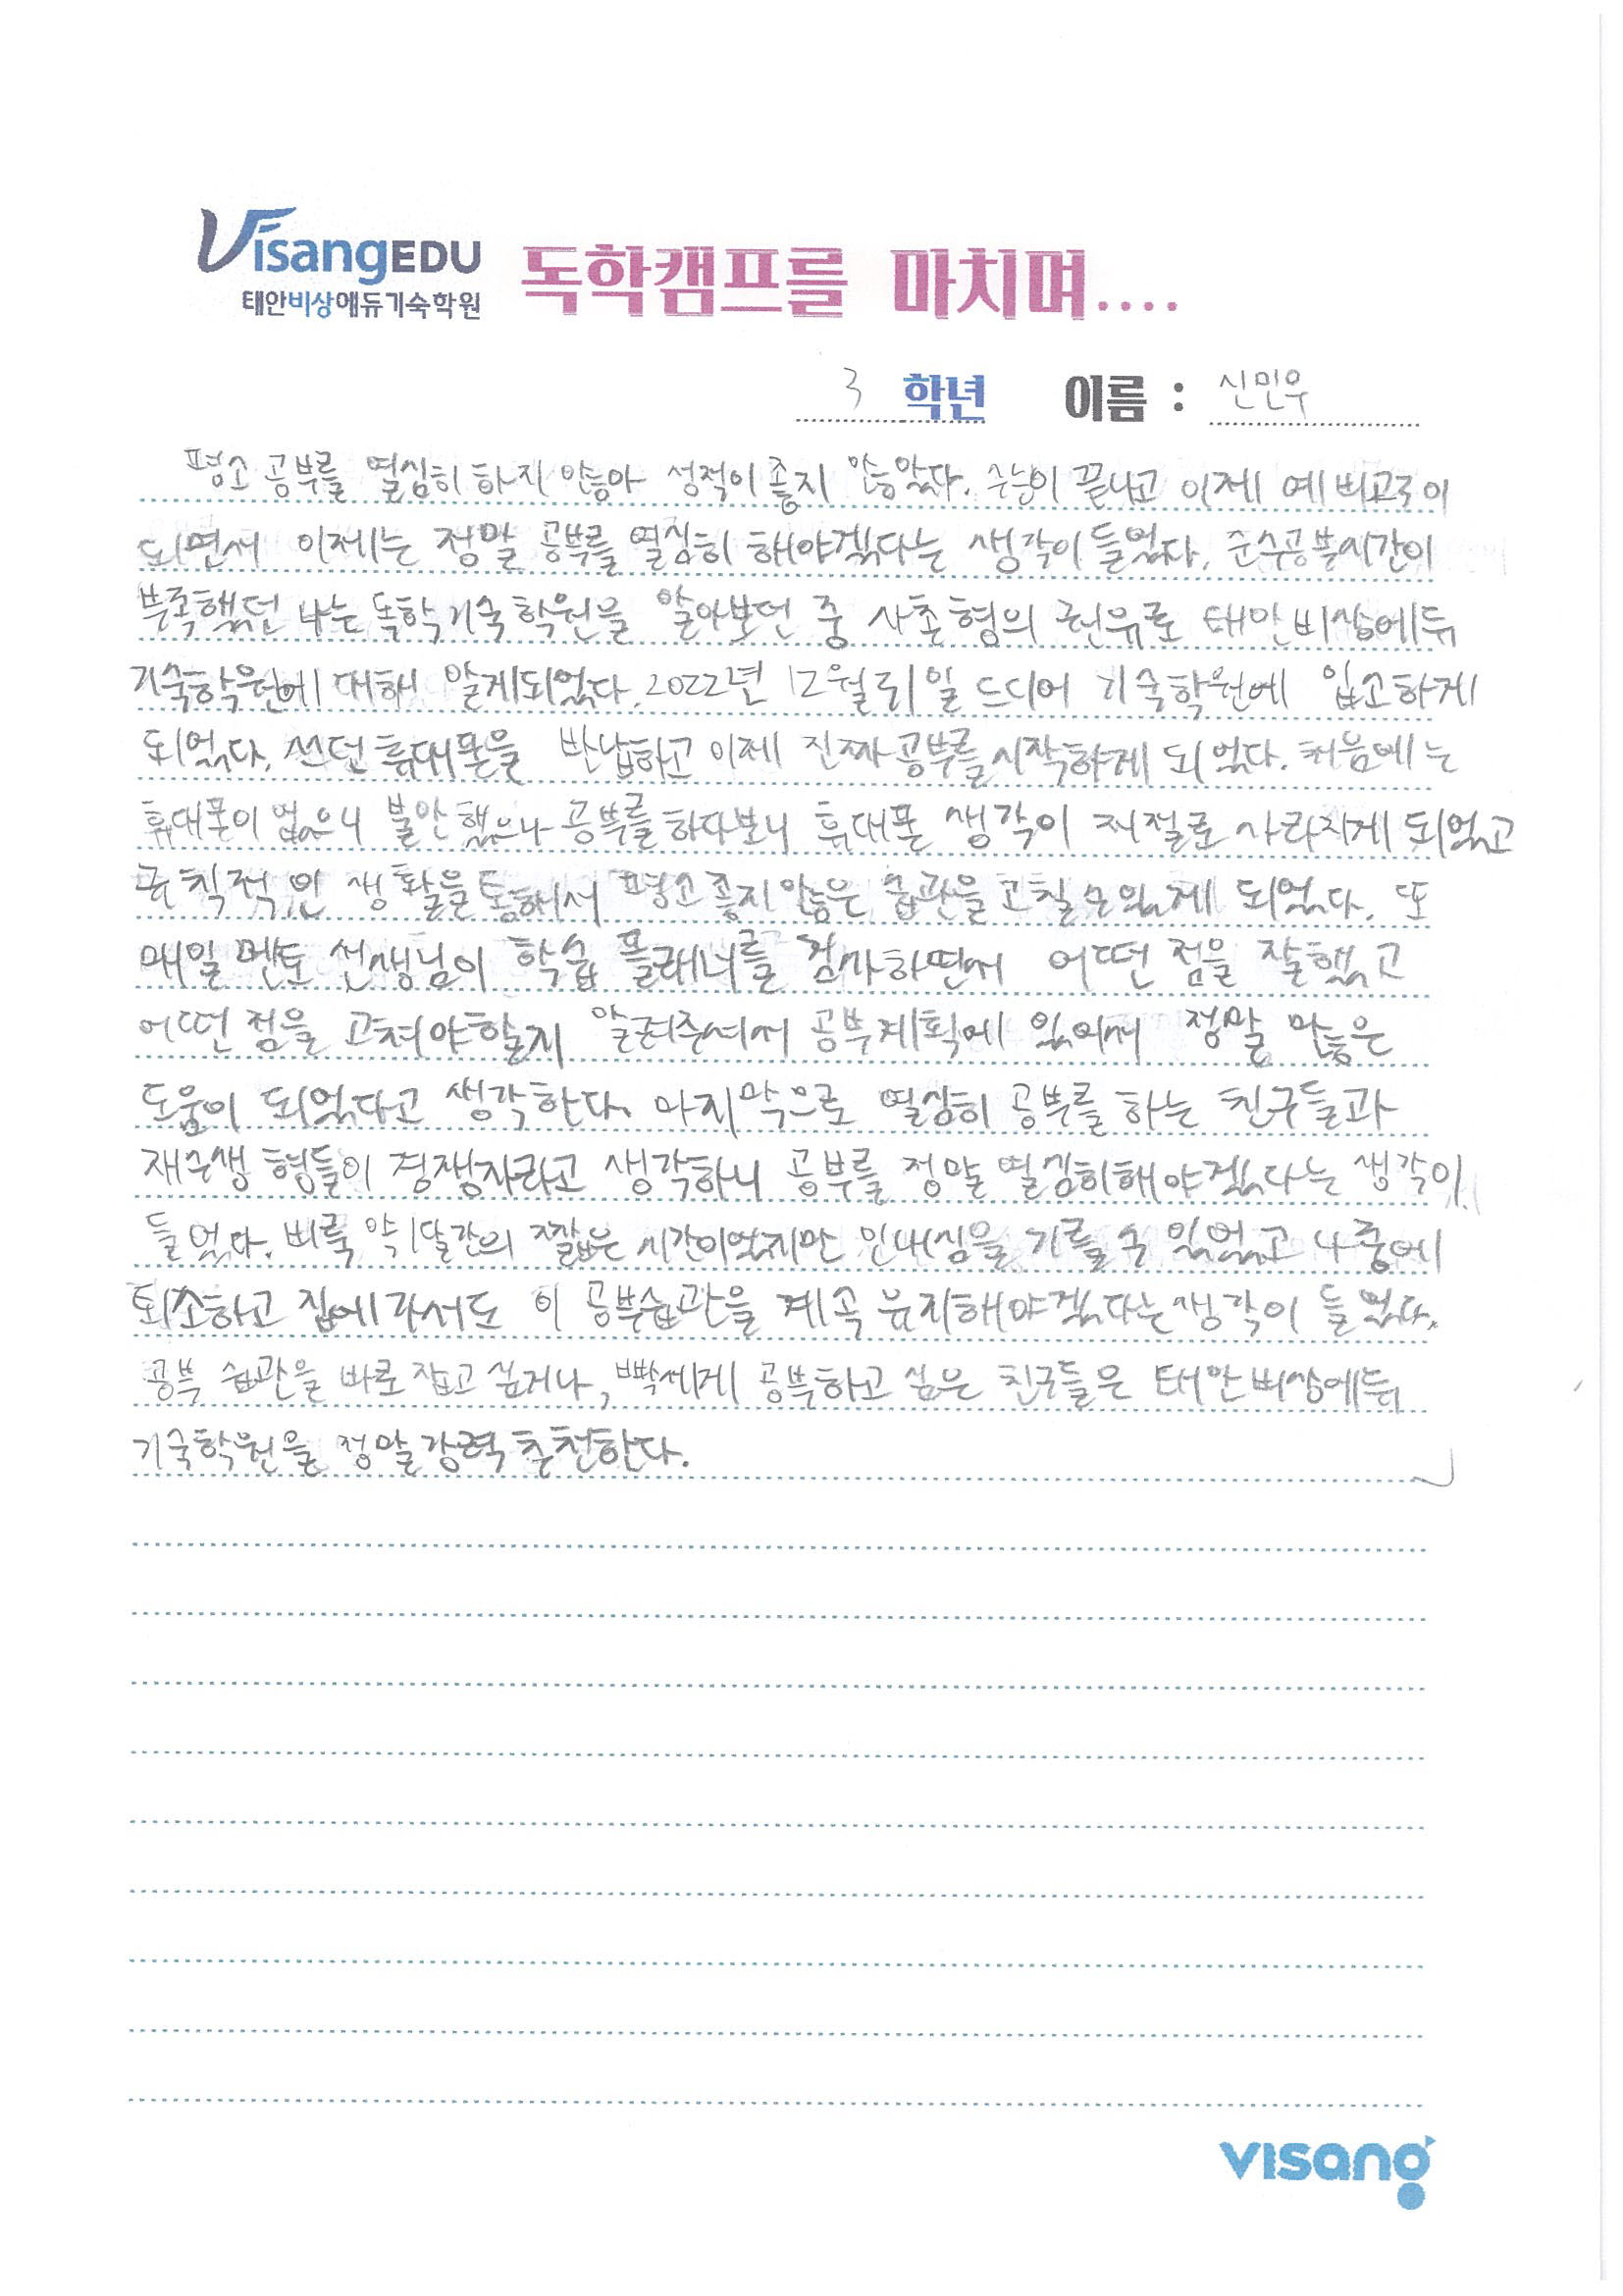 VisangEDU
태안비상에듀기숙학원
독학캠프를 마치며....
3 학년 이름 : 신민우
평소 공부를 열심히 하지 않아 성적이 좋지 않았다. 수능이 끝나고 이제 예비고3이
되면서 이제는 정말 공부를 열심히 해야겠다는 생각이 들었다. 순수공부시간이
부족했던 나는 독학기숙학원을 알아보던 중 사촌형의 권유로 태안비상에듀
기숙학원에 대해 알게되었다. 2022년 12월 31일 드디어 기숙학원에 입소하게
되었다. 쓰던 휴대폰을 반납하고 이제 진짜 공부를 시작하게 되었다. 처음에는
휴대폰이 없으니 불안했으나 공부를 하다보니 휴대폰 생각이 저절로 사라지게 되었고
규칙적인 생활을 통해서 평소 좋지않은 습관을 고칠수있게 되었다. 또
매일 멘토 선생님이 학습 플래너를 검사하면서 어떤 점을 잘했고
어떤 점을 고쳐야할지 알려주셔서 공부계획에 있어서 정말 많은
도움이 되었다고 생각한다. 마지막으로 열심히 공부를 하는 친구들과
재수생 형들이 경쟁자라고 생각하니 공부를 정말 열심히해야겠다는 생각이
들었다. 비록 약 1달간의 짧은 시간이었지만 인내심을 기를 수 있었고 나중에
퇴소하고 집에 가서도 이 공부습관을 계속 유지해야겠다는 생각이 들었다.
공부 습관을 바로 잡고 싶거나, 빡세게 공부하고 싶은 친구들은 태안비상에듀
기숙학원을 정말 강력 추천한다.
visang